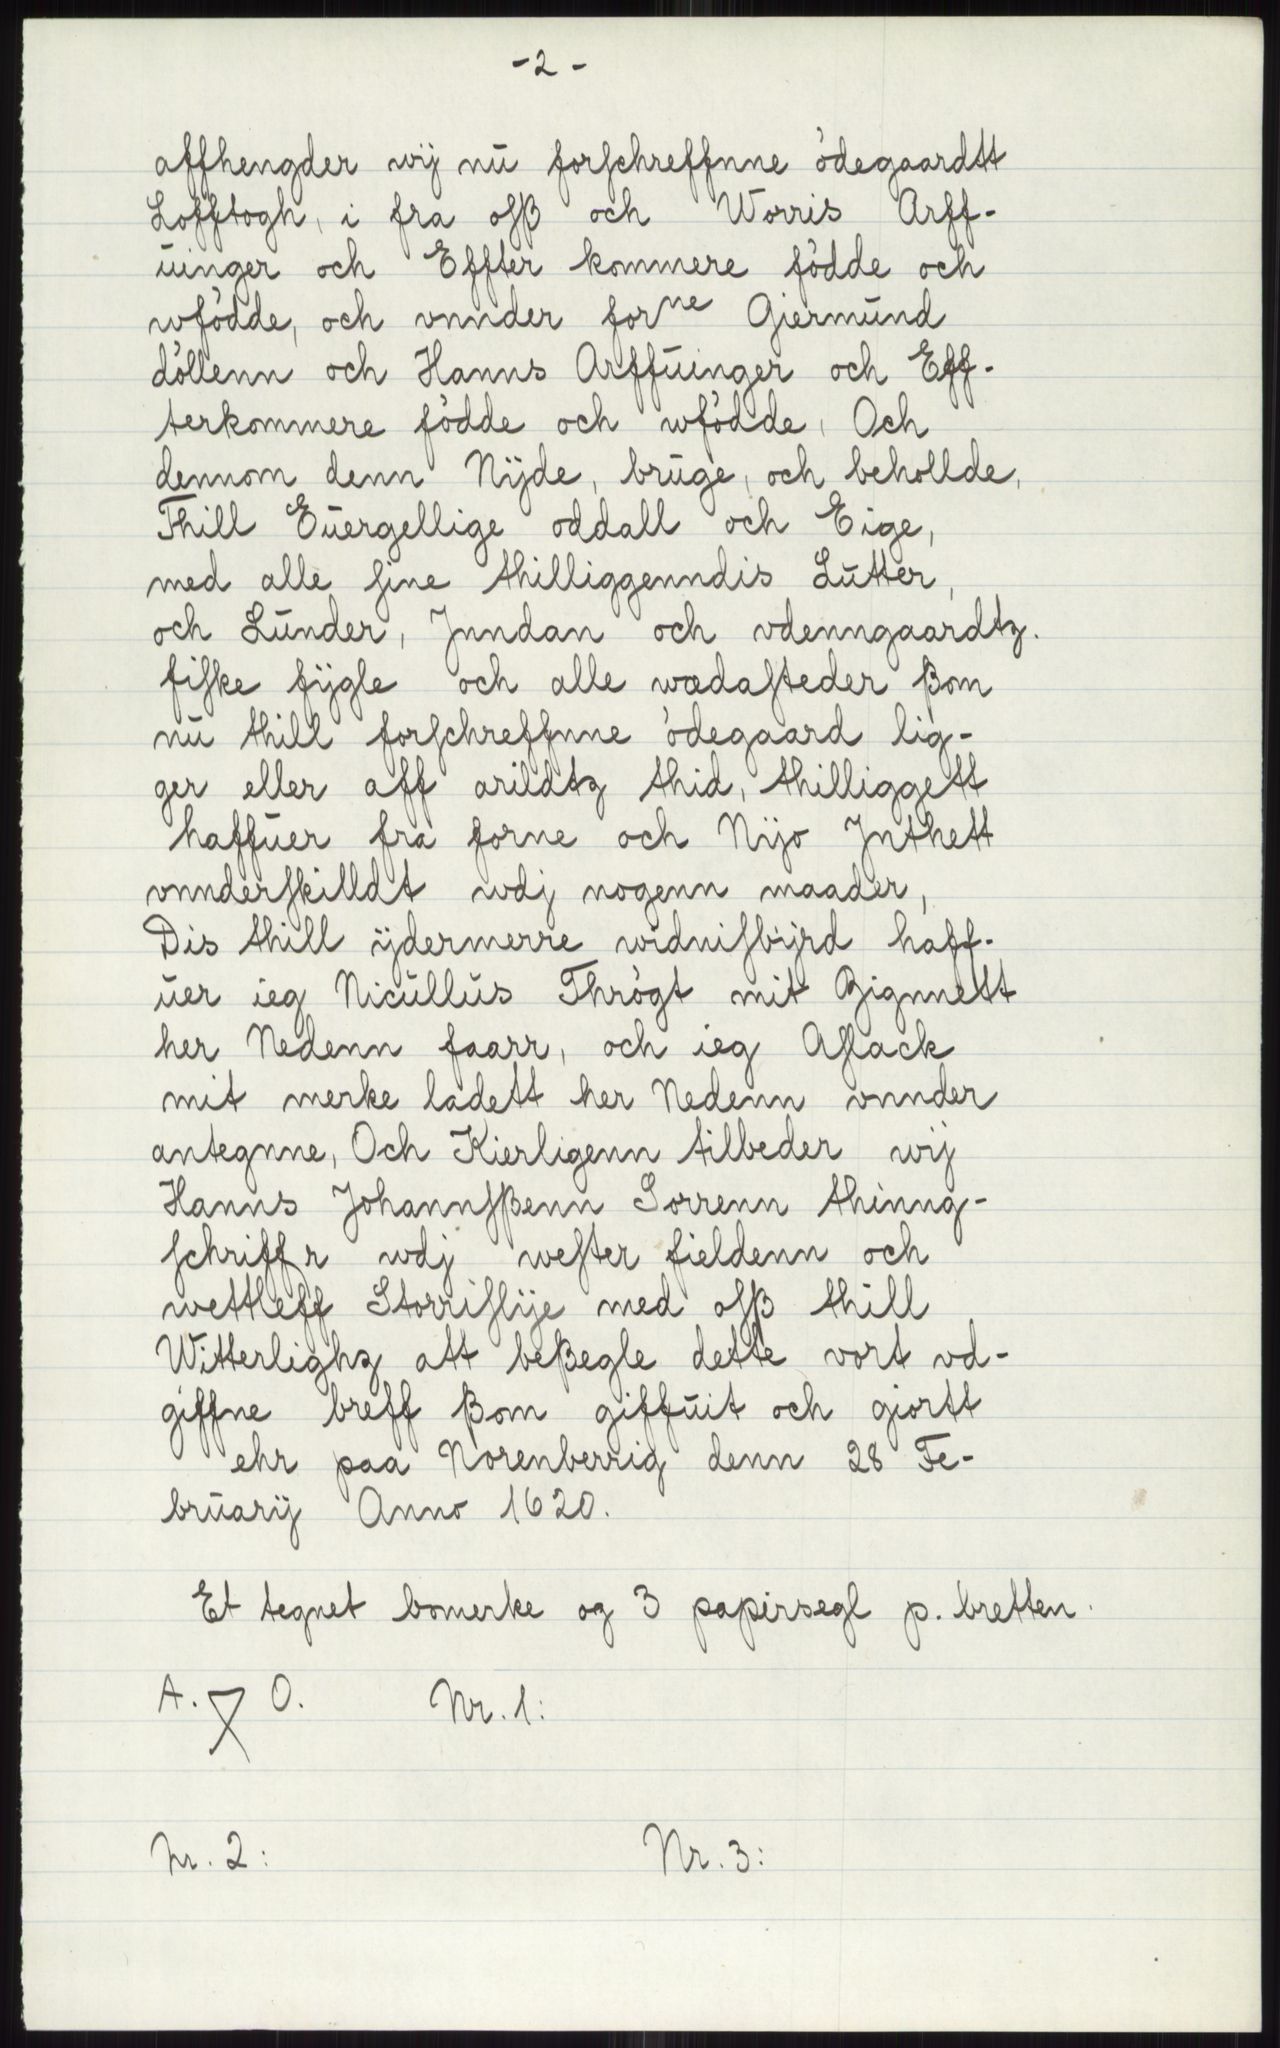 -2-
affhengder wij nū forſchreffnne ödegaardtt
Lofftogh, i fra oſß och Worris Arff-
ūinger och Effter kommere födde och
wfödde, och vnnder forne Giermūnd
döllenn och Hanns Arffūinger och Eff-
terkommere födde och wfödde, Och
dennom denn Nÿde, brūge, och behollde,
Thill Eūergellige oddall och Eige,
med alle ſine thilliggenndis Lūtter,
och Lūnder, Jnndan och vdenngaardtz.
fiſke fÿgle och alle wædaſteder ßom
nū thill forſchreffnne ödegaard lig-
ger eller aff arildtz thid, thilliggett
haffūer fra forne och Nijo Jnthett
vnnderſkilldt wdj nogenn maader,
Dis thill ÿdermerre widniſbÿrd haff-
ūer ieg Nicūllūs Thrögt mit Zignnett
her Nedenn faarr, och ieg Aſlack
mit merke ladett her Nedenn vnnder
antegnne, Och Kierligenn tilbeder wij
Hanns Johannſßenn Sorrenn thinng-
ſchriffr wdj weſter fieldenn och
wettleff Storriſlÿe med oſß thill
Witterlighz att beßegle dette vort vd-
giffne breff ßom giffūit och giortt
ehr paa Norenberrig denn 28 Fe-
brūarÿ Anno 1620.
Et tegnet bomerke og 3 papirsegl p. bretten.
A. O. Nr. 1:
Nr. 2: Nr. 3: